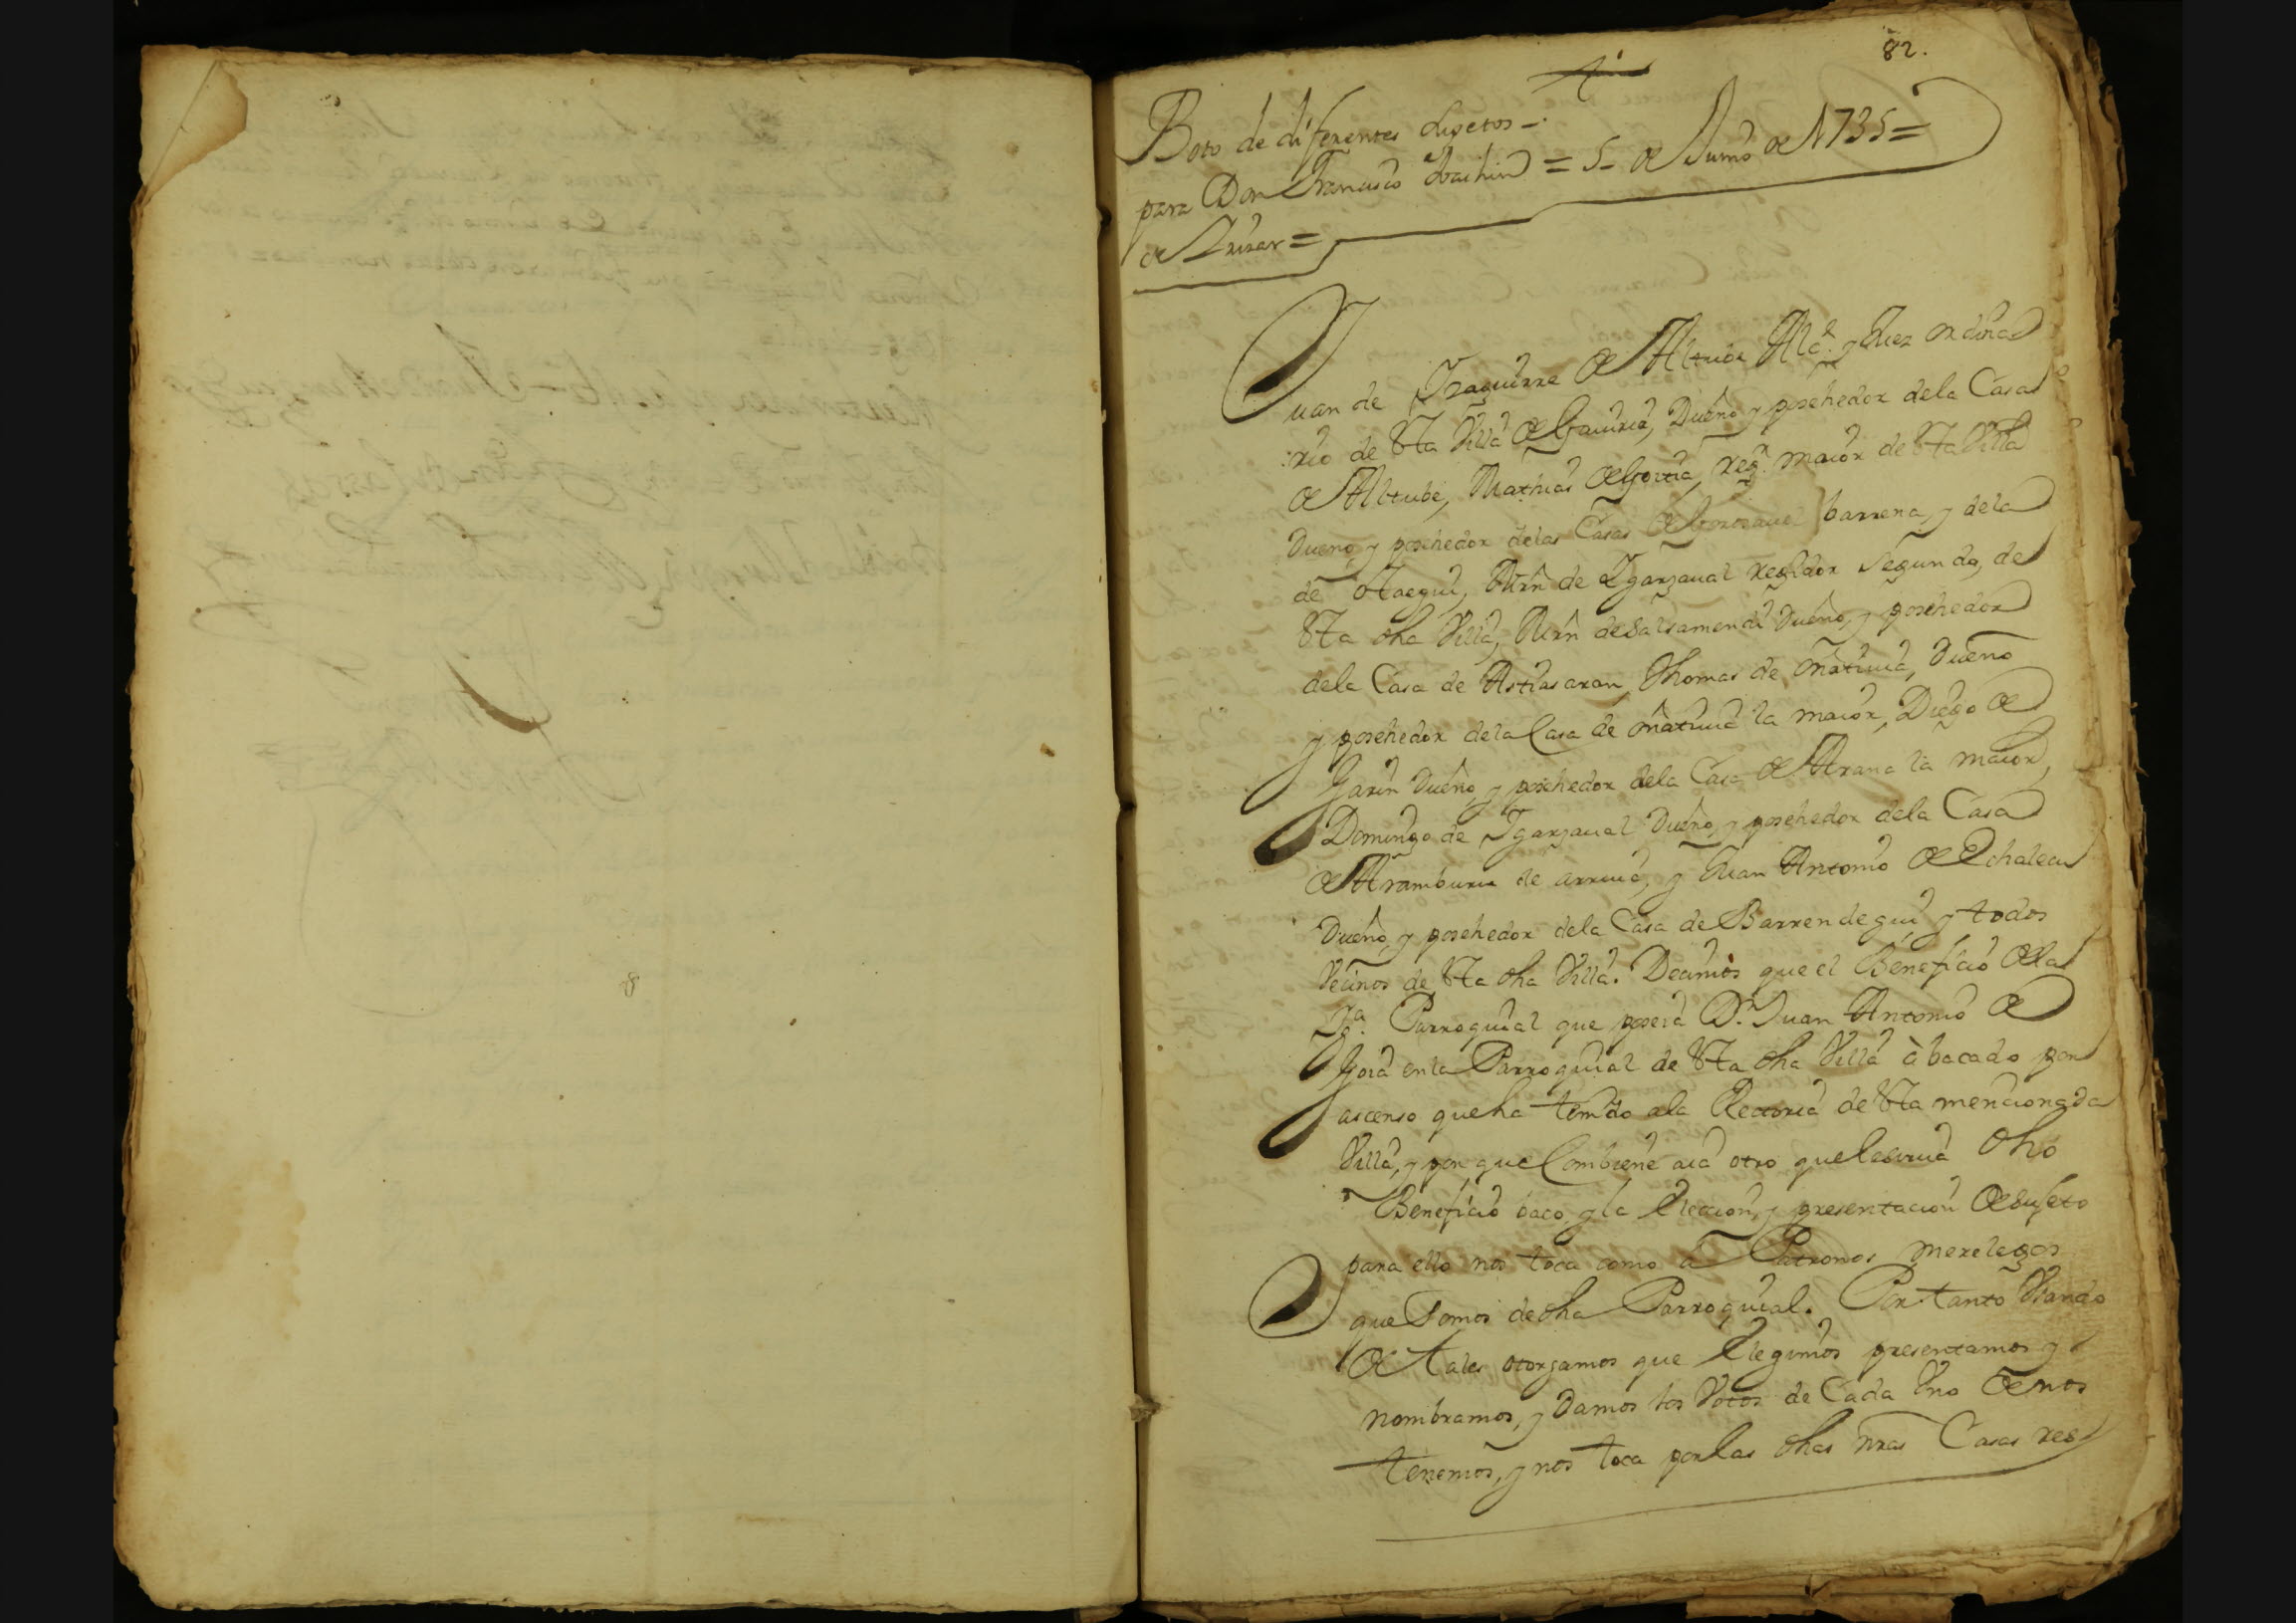 82.
Boto de diferentes sugetos =
para Don Francisco Joachin = 5 de Junio de 1735 =
de Arizar =
Juan de Yzaguirre de Altube Alce. y Juez ordina
rio de esta Villa de Gauiria, Dueño y posehedor dela Casa
de Altube, Mathias de Goitia, regr. maior de esta Villa
Dueño y posehedor delas Casas de Gorosauel barrena, y dela
de Otaegui, Mrn de Ygarzaual regidor segundo, de
esta dha Villa, Mrn de Salsamendi Dueño, y posehedor
dela Casa de Astiasaran, Thomas de Oñatiuia, Dueño
y posehedor dela Casa de Oñatiuia la maior, Diego de
Garin Dueño, y posehedor dela Casa de Arana la maior,
Domingo de Ygarzaual Dueño, y posehedor dela Casa
de Aramburu de arriua, y Juan Antonio de Echalecu
Dueño, y posehedor dela Casa de Barrendegui, y todos
Vecinos de esta dha Villa. Decimos que el Beneficio dela
Yga. Parroquial que poseia Dn. Juan Antonio de
Goia en la Parroquial de esta dha Villa à bacado por
ascenso que ha tenido ala Rectoria de esta mencionada
Villa, y por que Combiene aia otro que le sirua dho
Beneficio baco, y la eleccion, y presentacion de sujeto
para ello nos toca como a Patronos merelegos
que somos de dha Parroquial. Por tanto Usando
de tales otorgamos que elegimos presentamos y
nombramos, y damos los Votos de Cada Uno de nos
tenemos, y nos toca por las dhas nras Casas res